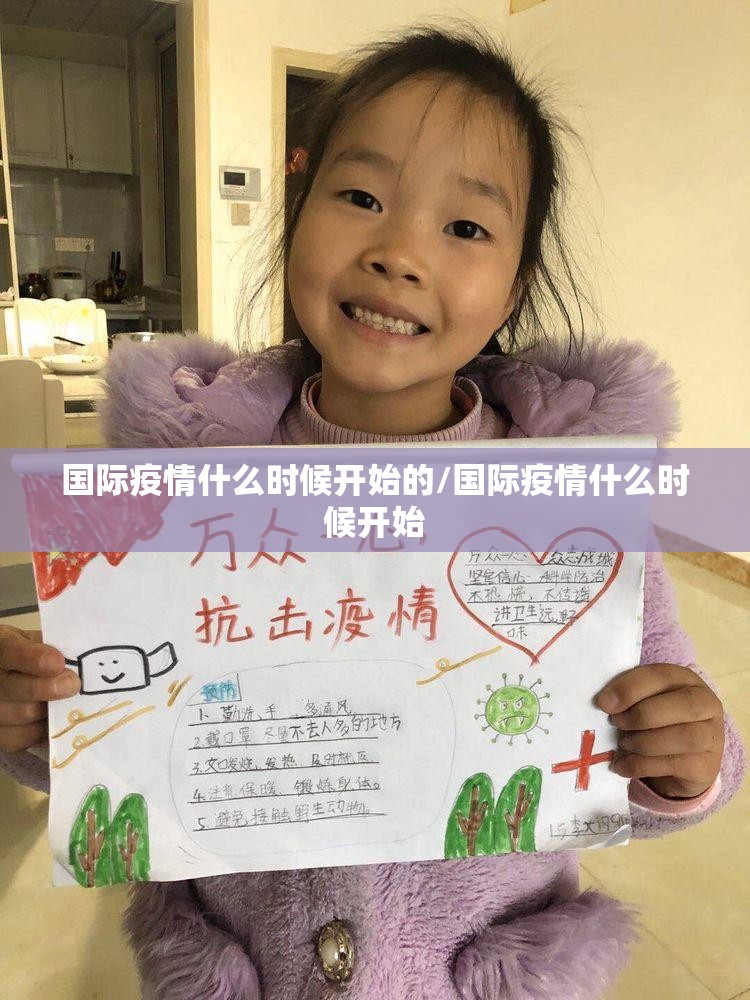 国际疫情什么时候开始的/国际疫情什么时
候开始
万众一心
抗击疫情
万众一心、众志成城
坚定信心、科学防治
不恐慌，不传谣
讲卫生远野
味
预防
1、勤洗手 多通风
2、戴口罩 尽量不去人多的地方
发热、及时就医
4、注意保暖、锻炼身体。
5、避免接触野生动物。